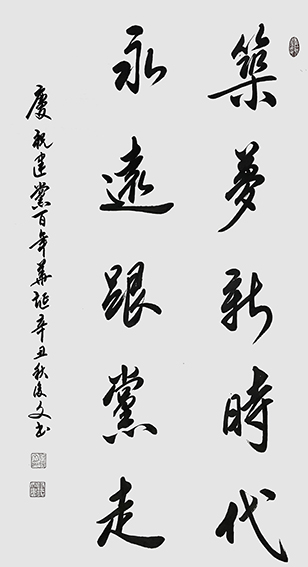 築夢新時代
永遠跟黨走
慶祝建黨百年華誕辛丑秋俊文书